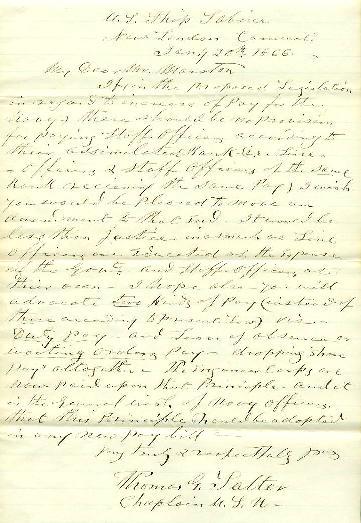 U.S. Ship Sabine
New London Connecti
Jany 20th 1866
My Dear Mr. Marston
If in the proposed Legislation
in regard to increase of Pay for the
Navy there should be no Provision
for paying Staff Officers according to
their assimilated Rank (i.e. Line
Officers & Staff Officers of the same
Rank receiving the same Pay) I wish
you would be pleased to move an
amendment to that End. It would be
less than Justice inasmuch as Line
Officers are educated at the expense
of the Govt. and Staff Officers at
their own. I hope also you will
advocate two kinds of Pay (instead of
three according to present Law) viz
Duty Pay and Leave of absence or
waiting Orders Pay dropping Shore
pay altogether. The Marine Corps are
now paid upon that Principle and it
is the general wish of Navy Officers
that this Principle should be adopted
in any new pay bill
Very truly & respectfully yours
Thomas G. Salter
Chaplain U.S.N.